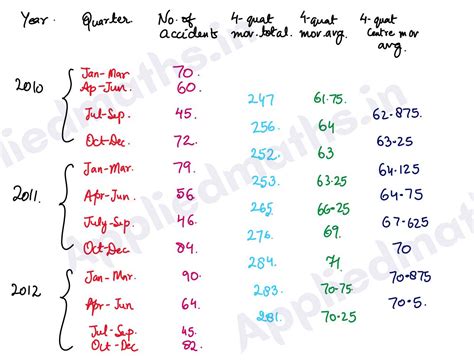 Year. Quarter. No. of accidents 4-quat mov. total. 4-quat mov avg. 4-quat Centre mov avg.
2010 Jan-Mar 70.
Ap-Jun. 60.
247 61.75
Jul-Sep. 45. 62.875.
256 64
Oct-Dec. 72. 63.25
252. 63
2011. Jan-Mar. 79. 64.125
253. 63.25
Apr-Jun. 56 64-75
265 66-25
July-Sep. 46. 67-625
276. 69.
Oct-Dec 84. 70
284. 71
2012 Jan-Mar. 90. 70-875
283. 70-75
Apr-Jun 64. 70-5.
281. 70-25
Jul-Sep 45
Oct-Dec. 82.
Appliedmaths.in
Appliedmaths.in